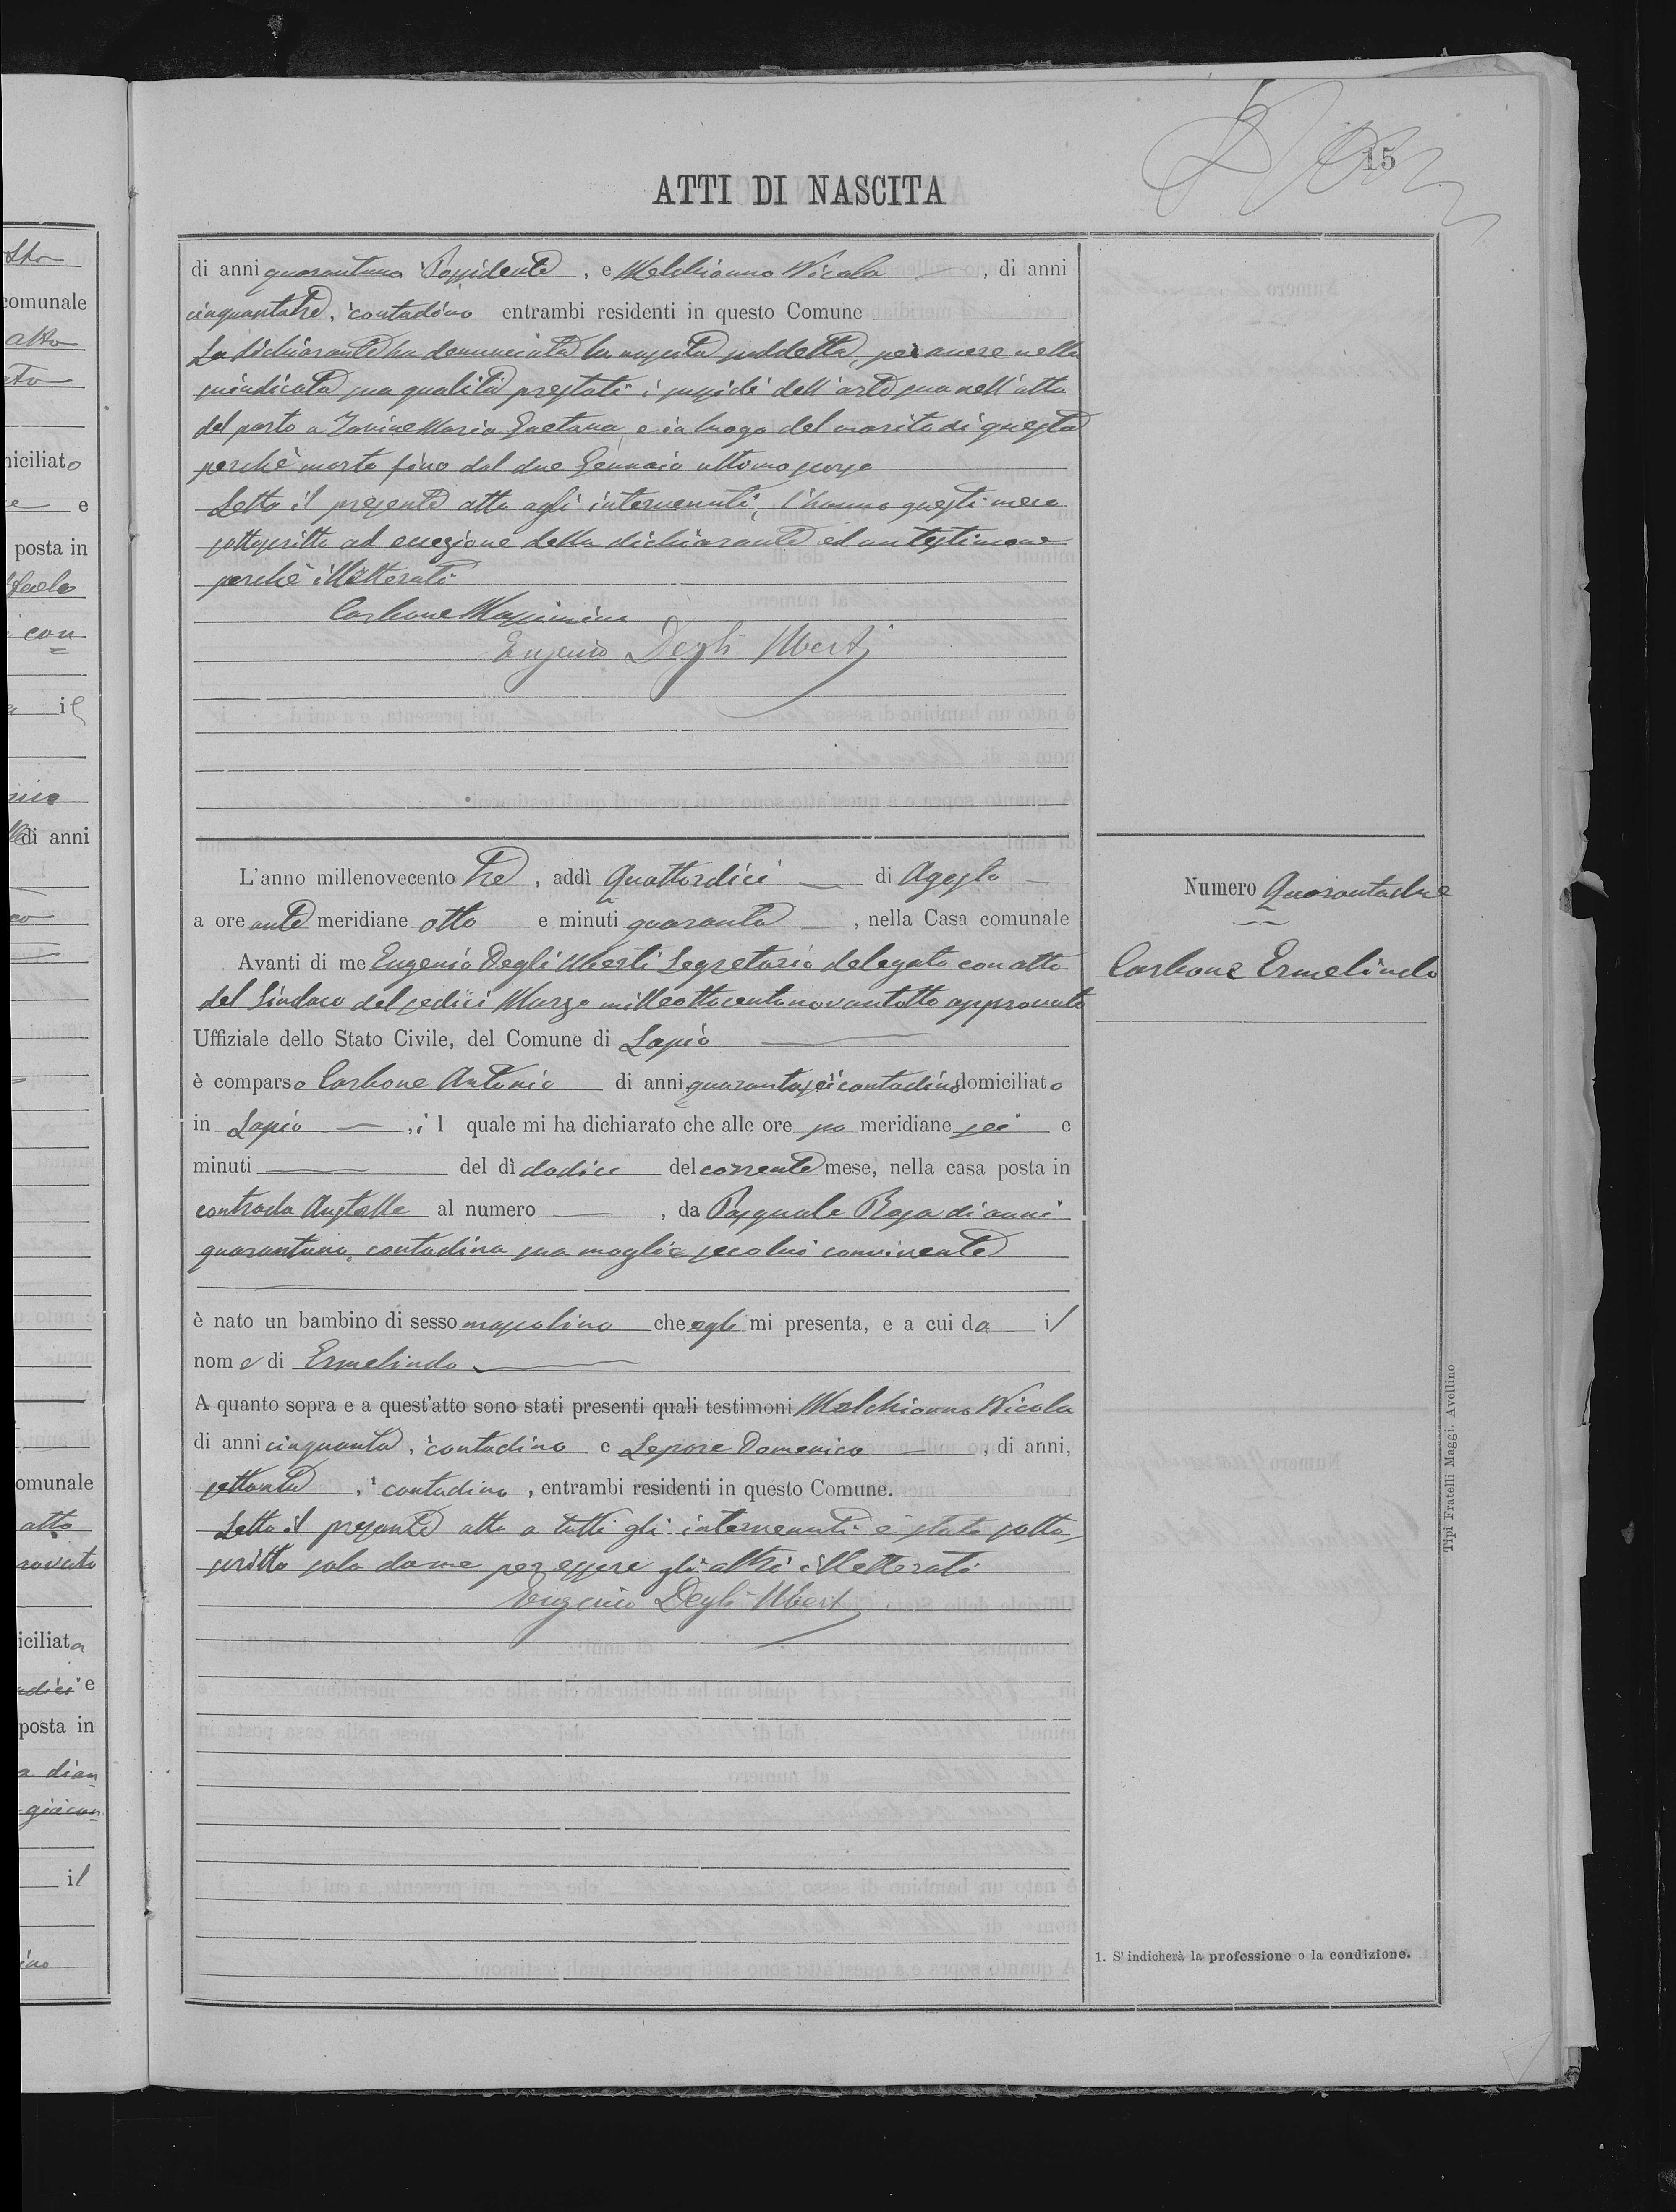 sto
comunale
atto
ato
niciliato
e e
posta in
con
il
nico
di anni
co
omunale
atto
rovato
iciliata
e
posta in
a dian
il
ino
15
ATTI DI NASCITA
di anni quarantuno Possidente, e Melchionno Nicola, di anni
cinquantatre, contadino entrambi residenti in questo Comune
La dichiarante ha denunciata la nascita suddetta, per avere nella
suindicata sua qualità prestati i sussidi dell'arte sua nell'atto
del parto a Maria Gaetana, e in luogo del marito di questa
perchè morto fino dal due Gennaio ultimo scorso
Letto il presente atto agli intervenuti, l'hanno questi meco
sottoscritto ad eccezione della dichiarante ed un testimone
perchè illetterati
Carbone Massimino
Eugenio Degli Uberti
L'anno millenovecento tre, addì Quattordici di Agosto
a ore ante meridiane otto e minuti quaranta, nella Casa comunale
Avanti di me Eugenio Degli Uberti Segretario delegato con atto
del Sindaco del sedici Marzo milleottocentonovantotto approvato
Uffiziale dello Stato Civile, del Comune di Lapio
è comparso Carbone Antonio di anni quarantasei contadino domiciliato
in Lapio, il quale mi ha dichiarato che alle ore po meridiane sei e
minuti del dì dodici del corrente mese, nella casa posta in
contrada al numero, da Pasquale Rosa di anni
quarantuno, contadina sua moglie secolui convivente
è nato un bambino di sesso mascolino che egli mi presenta, e a cui da il
nome di Ermelindo
A quanto sopra e a quest'atto sono stati presenti quali testimoni Melchionno Nicola
di anni cinquanta, contadino e Lepore Domenico, di anni,
settanta, contadino, entrambi residenti in questo Comune.
Letto il presente atto a tutti gli intervenuti è stato sotto
scritto solo da me per essere gli altri illetterati
Eugenio Degli Uberti
Numero Quarantadue
Carbone Ermelindo
1. S'indicherà la professione o la condizione.
Tipi Fratelli Maggi. Avellino